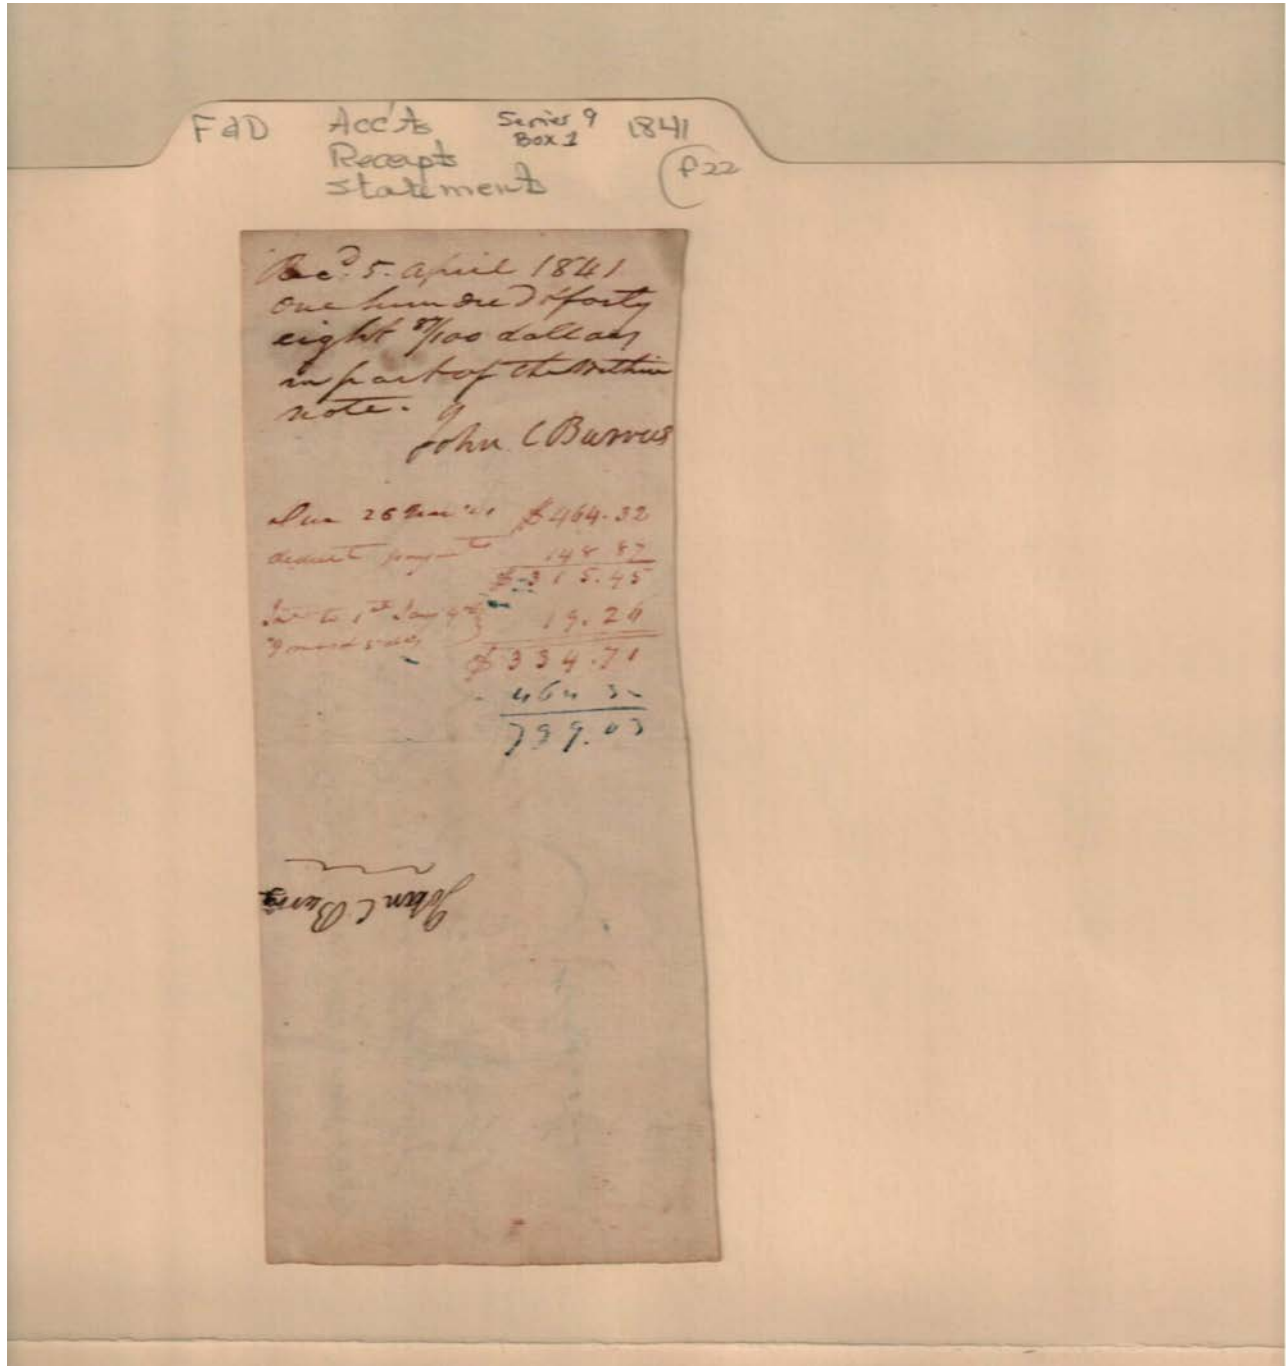 F&D Acc'ts Series 9 1841
Box 1
Receipts
Statements
f22
Rec^d. 5. april 1841
one hundred & forty
eight 87/100 dollars
in part of the within
note.
John C Burrus
Due 26 $464.32
deduct payment 148 87
$315.45
Int to 1st Jany 19.26
9 mos & 5 days
$334.71
464 32
799.03
John C Burrus